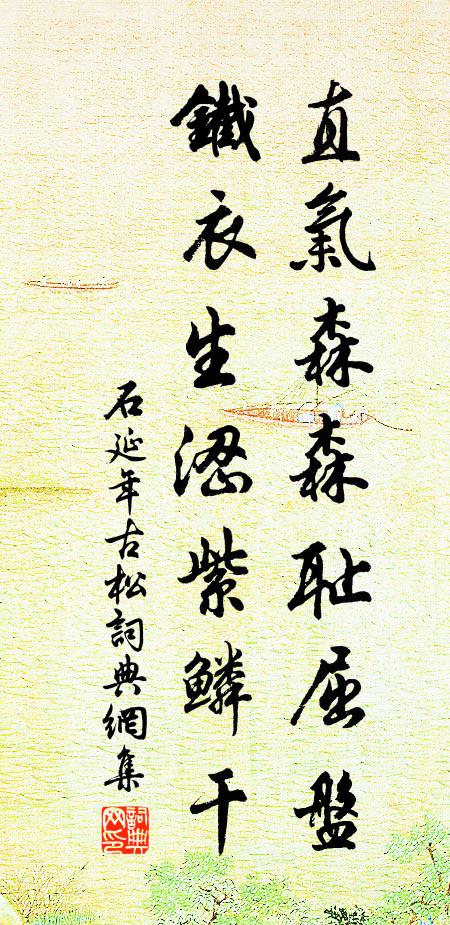 直氣森森耻屈盤
鐵衣生澀紫鱗干
石延年古松詞典網集
詞典网印